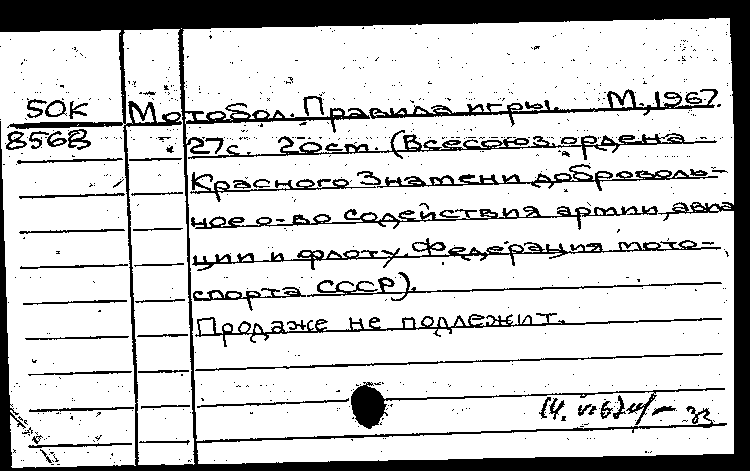 50К Мотобол. Правила игры. М., 1967.
8568 27с. 20ст. (Всесоюз. ордена
Красного Знамени доброволь-
ное о-во содействия армии, авиа
ции и флоту. Федерация мото-
спорта СССР).
Продаже не подлежит.